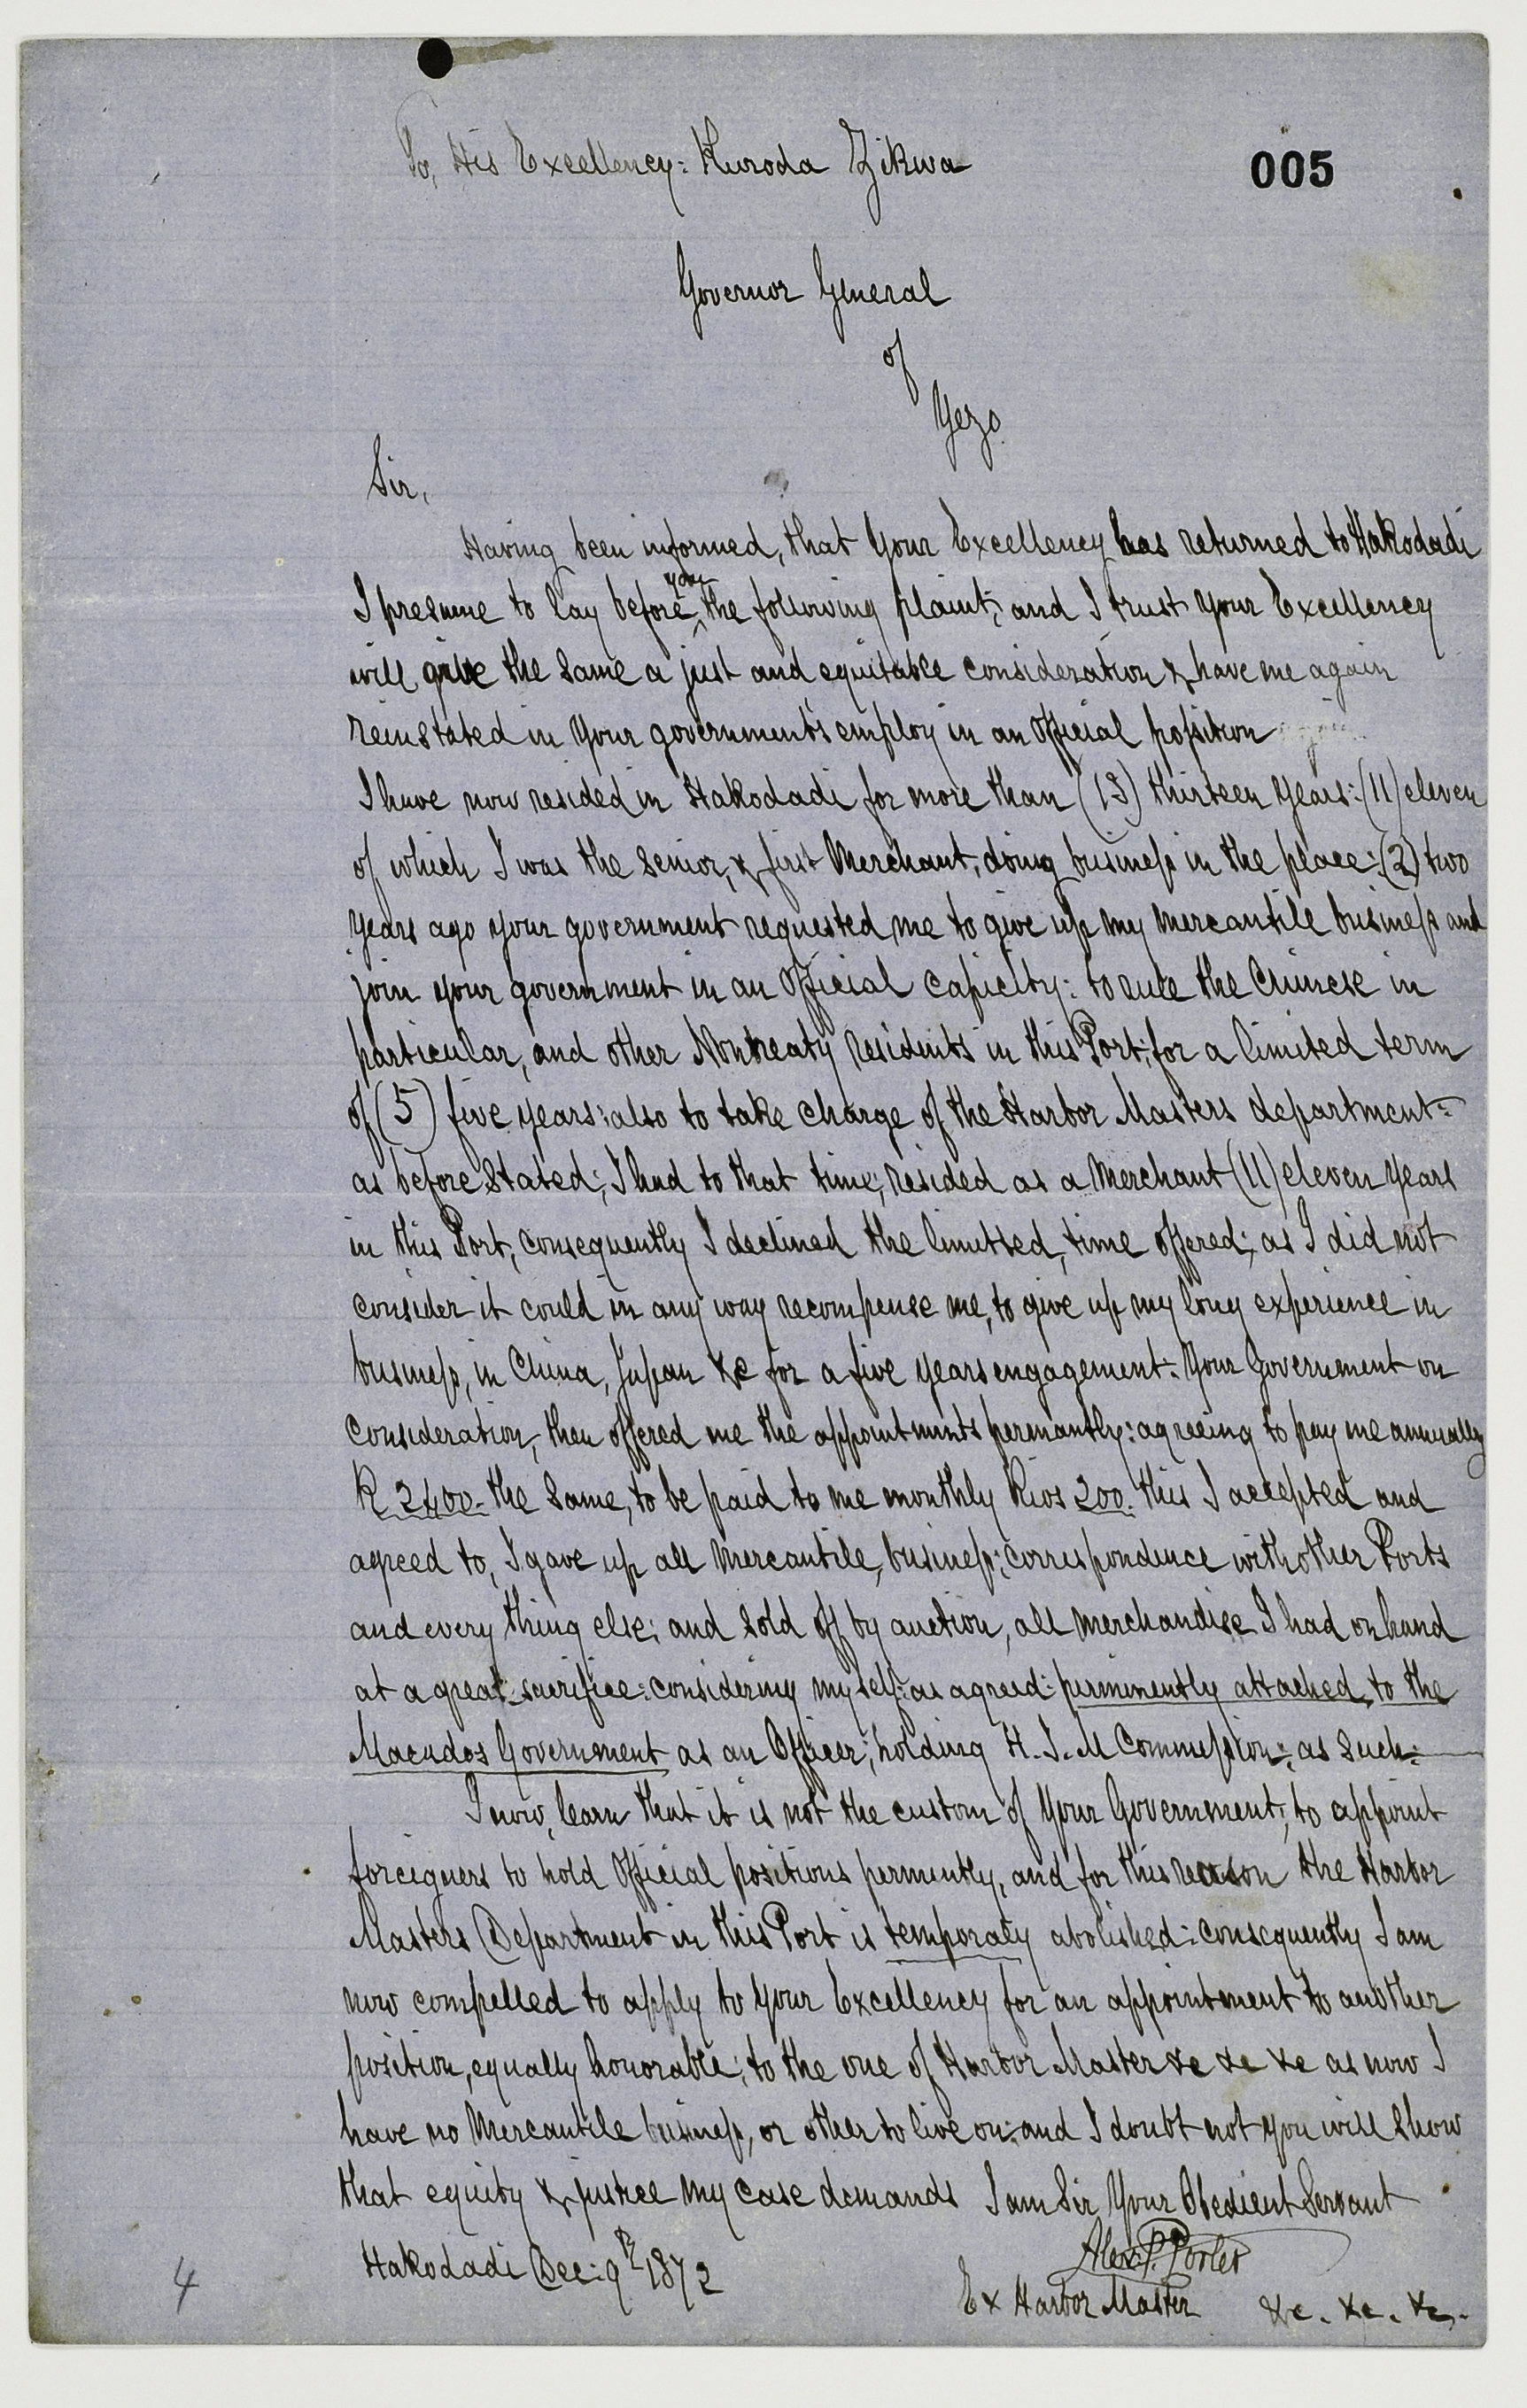 005
To, His Excellency: Kuroda Zikwa
Governor General
of
Yezo
Sir,
Having been informed, that Your Excellency has returned to Hakodadi
I presume to lay before you the following plaint; and I trust Your Excellency
will give the same a just and equitable consideration & have me again
reinstated in Your government's employ in an Official position
I have now resided in Hakodadi for more than (13) thirteen Years: (11) eleven
of which I was the Senior, & first Merchant, doing business in the place: (2) two
Years ago your government requested me to give up my mercantile business and
join your government in an Official capicity: to rule the Chinese in
particular, and other Nontreaty residents in this Port; for a limited term
of (5) five years: also to take charge of the Harbor Masters department:
as before stated; I had to that time; resided as a Merchant (11) eleven Years
in this Port; consequently I declined the limitted, time offered; as I did not
consider it could in any way recompense me, to give up my long experience in
business, in China, Japan &c for a five years engagement. Your Government on
consideration, then offered me the appointments permantly: agreeing to pay me annually
R 2400 - the same, to be paid to me monthly Rios 200. this I accepted and
agreed to, I gave up all Mercantile, business; correspondence with other Ports
and every thing else; and sold off by auction, all merchandise I had on hand
at a great sacrifice: considering my self: as agreed: perminently attached, to the
Macados Government as an Officer; holding H. I. M Commission; as such:
I now, learn that it is not the custom of Your Government; to appoint
foreigners to hold Official positions permently, and for this reason the Harbor
Masters Department in this Port is temporaly abolished: consequently I am
now compelled to apply to Your Excellency for an appointment to another
position, equally honorable; to the one of Harbor Master &c &c &c as now I
have no Mercantile business, or other to live on; and I doubt not you will show
that equity & justice my case demands I am Sir Your Obedient Servant
Alex. P. Porter
Hakodadi Dec: 9th 1872
Ex Harbor Master &c. &c. &c.
4